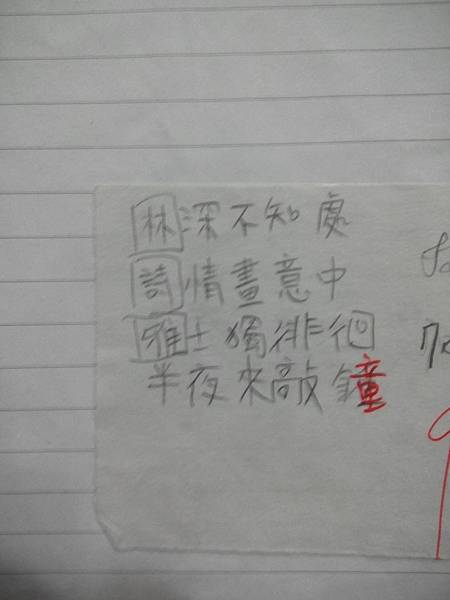 林深不知處
詩情畫意中
雅士獨徘徊
半夜來敲鐘